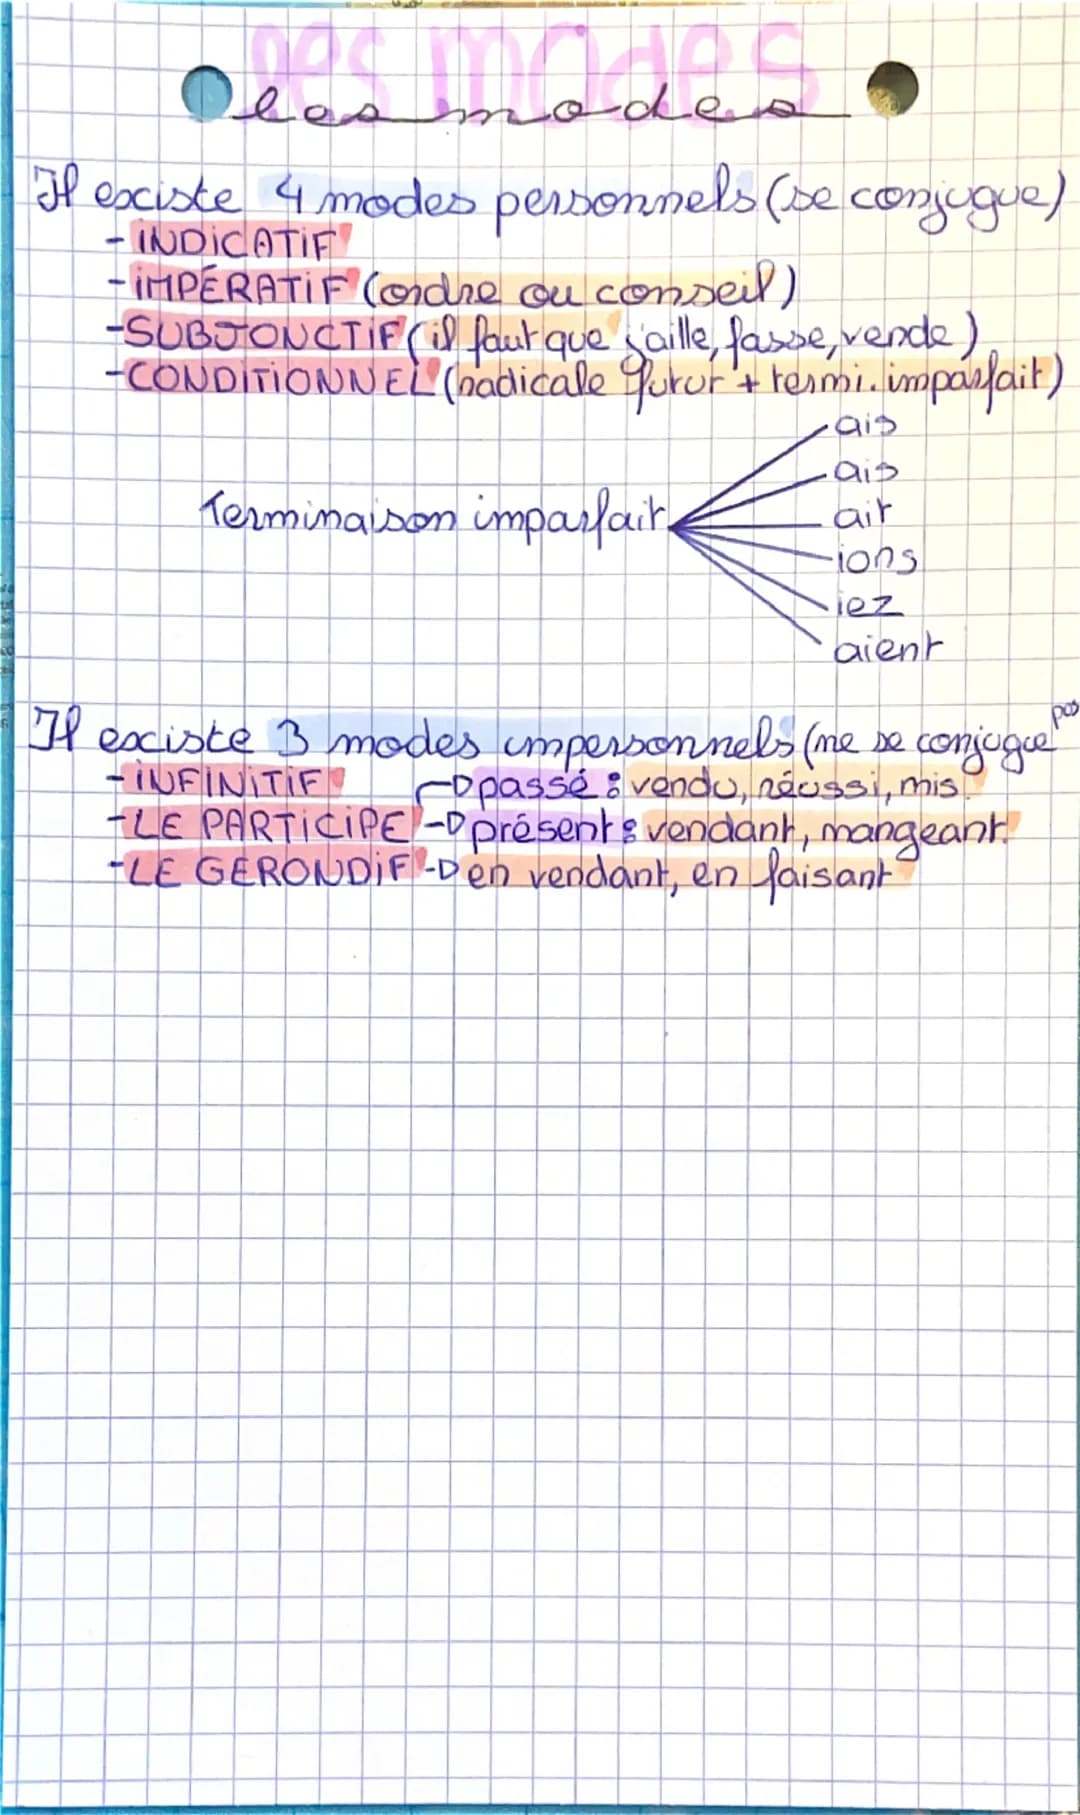 les modes
les modes
Il existe 4 modes personnels (se conjugue)
- INDICATIF
- IMPÉRATIF (ordre ou conseil)
- SUBJONCTIF (il faut que j'aille, fasse, vende)
- CONDITIONNEL (radicale "futur" + termi. imparfait)
Terminaison imparfait
ais
ais
ait
ions
iez
aient
Il existe 3 modes impersonnels (ne se conjugue pas
- INFINITIF
passé : vendu, réussi, mis.
- LE PARTICIPE présent : vendant, mangeant.
- LE GERONDIF en vendant, en faisant